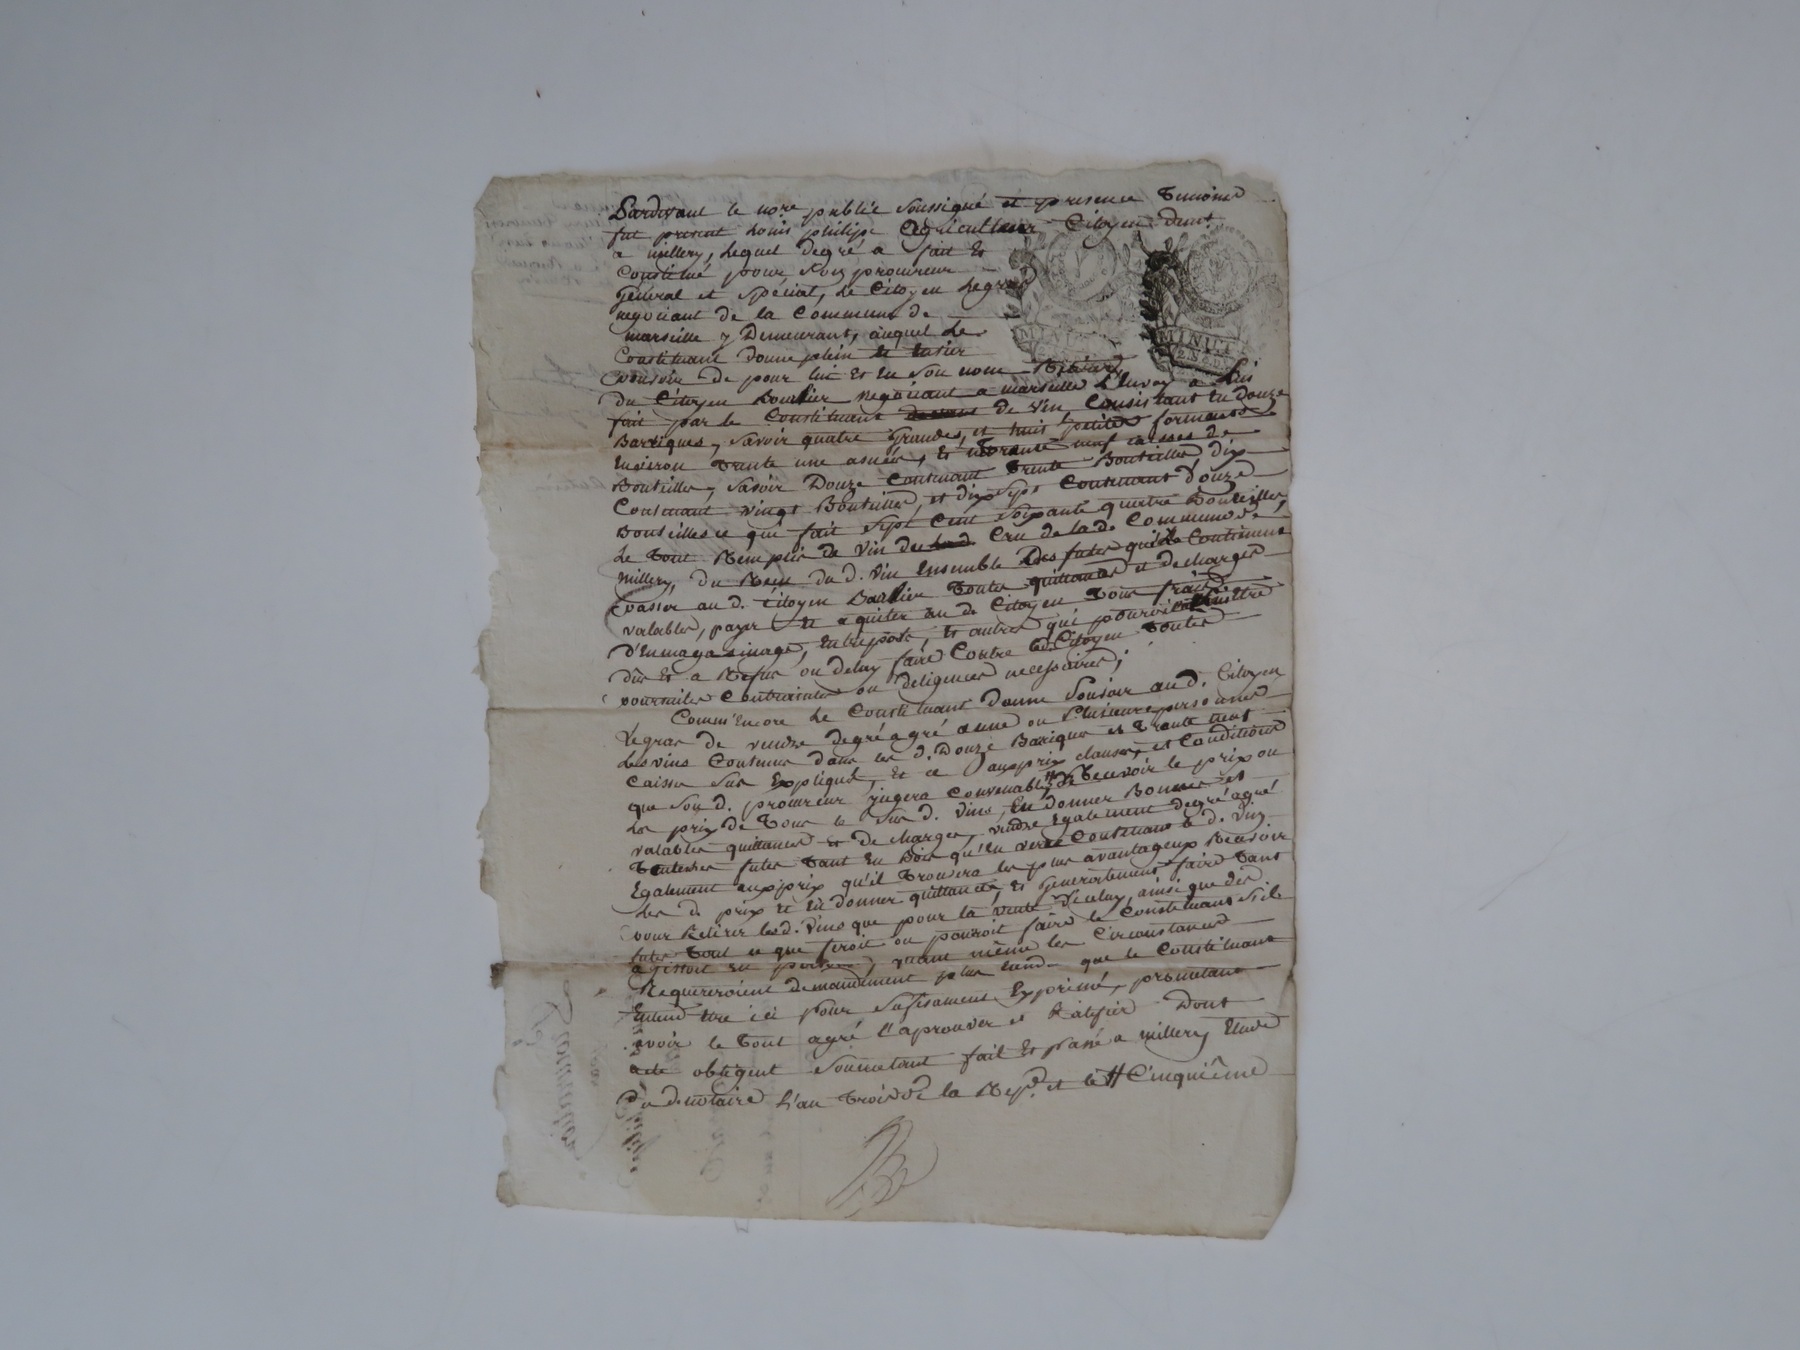 Pardevant le nore public soussigné et presence Temoins
fut present Louis philipe agriculteur Citoyen demt
a millery, Lequel degré a fait et
Constitué pour son procureur
general et spécial, Le Citoyen Legras
negociant de la Commune de
marseille y Demeurant, auquel Le
Constituant donne plein et entier
pouvoir de pour lui et en son nom Retirer
du Citoyen negociant a marseille L'envoy a lui
fait par le Constituant de vin Consistant en douze
Barriques, savoir quatre grandes, et huit petites formants
Environ trente une asnées, et trente neuf caisses de
Bouteilles, savoir Douze Contenant trente Bouteilles, dix
Contenant vingt Bouteilles, et dix sept Contenant Douze
Bouteilles ce qui fait sept Cent soixante quatre Bouteilles,
Le tout Remplis de vin du Cru de lad. Commune de
millery, du Reçu du d. vin Ensemble des futes qui le Contiennent
passer au d. Citoyen toutes quittances et decharges
valables, payer et aquiter au d. Citoyen tous frais
d'Enmagasinage, Entrepost, et autres qui pouroit être
dûs et a Refus ou delay faire Contre led. Citoyen toutes
poursuites Contraintes ou deligences necessaires;
Comm'Encore Le Constituant donne pouvoir au d. Citoyen
Legras de vendre degré agré a une ou Plusieurs personnes
Les vins Contenus dans les d. Douze Bariques et trante neuf
Caisse sus Expliqués, Et ce aux prix clauses, et Conditions
que son d. procureur jugera Convenables Recevoir le prix ou
Les prix de tous le sus d. vins, En donner Bonnes et
valables quittances et decharges, vendre Egalement degré agré
toutes les futes tant en Bois qu'En verre Contenant le d. vin
Egalement aux prix qu'il trouvera les plus avantageux Recevoir
les d. prix et En donner quittances, et generalement faire tant
pour Retirer les d. vins que pour la vente d'iceluy ainsi que des
futes tout ce que feroit ou pouroit faire le Constituant s'il
agissoit en personne, quant même les Circonstances
Requereroient demandement plus Etendu que le Constituant
Entend être ici pour sufisament Exprimé, promettant
avoir le tout agré l'aprouver et Ratifier Dont
acte obligent soumetant fait et passé a millery Etude
du d. notaire L'an trois de la Rep. et le Cinquième
MINUTE
MINUTE